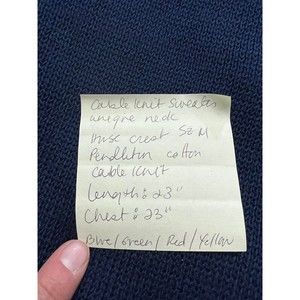 Cable Knit Sweater
unique neck
crest Sz M
Pendleton cotton
Cable Knit
length: 23"
Chest: 23"
Blue/Green/Red/Yellow